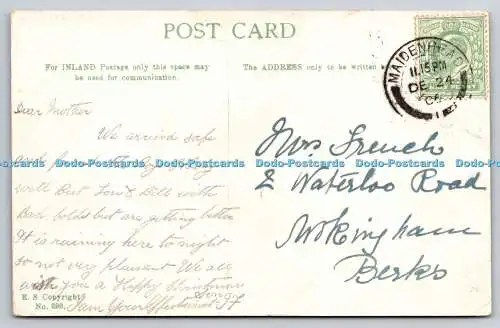 POST CARD
For INLAND Postage only this space may
be used for communication.
The ADDRESS only to be written
MAIDENHEAD
11.15 PM
DE 24
06
Dear Mother
We arrived safe
well But Tom & Will with
Bad Colds but are getting better
It is raining here to night
so not very pleasant We all
wish you a Happy Christmas
I am Your Affectionate
E. S Copyright
No.
Mrs French
2 Waterloo Road
Wokingham
Berks
Dodo-Postcards Dodo-Postcards Dodo-Postcards Dodo-Postcards Dodo-Postcards Dodo-Postcards